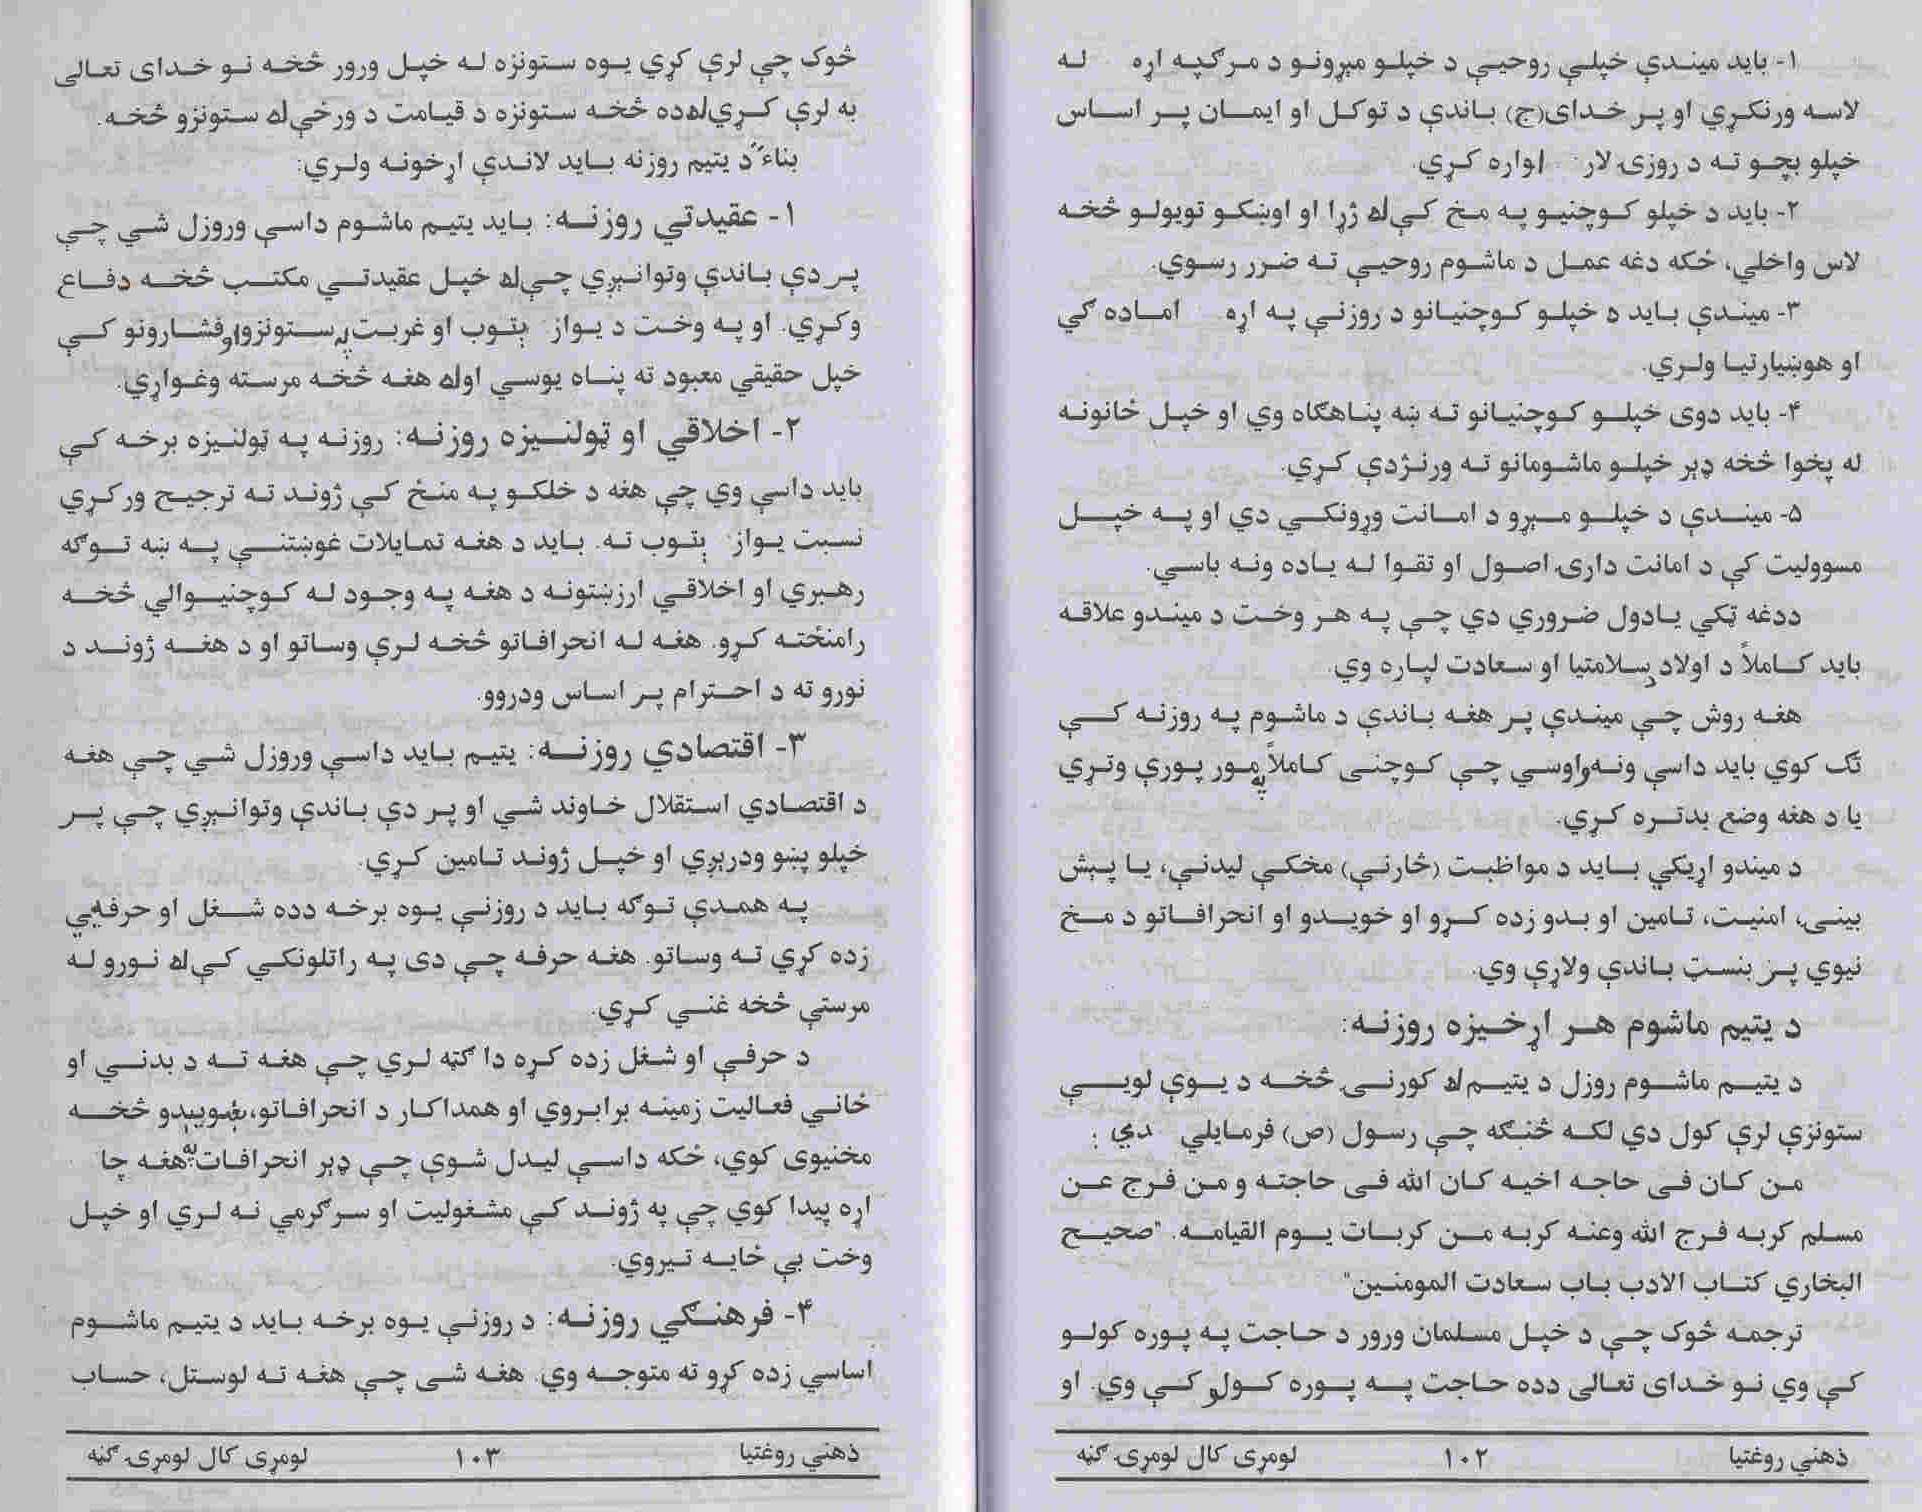 ۱- باید میندې خپلې روحیې د خپلو مېړونو د مرګپه اړه له
لاسه ورنکړي او پر خدای(ج) باندې د توکل او ایمان پر اساس
خپلو بچو ته د روزۍ لار اواره کړي.
۲- باید د خپلو کوچنیو په مخ کې له ژړا او اوښکو تویولو څخه
لاس واخلي، ځکه دغه عمل د ماشوم روحیې ته ضرر رسوي.
۳- میندې باید د خپلو کوچنیانو د روزنې په اړه اماده ګي
او هوښیارتیا ولري.
۴- باید دوی خپلو کوچنیانو ته ښه پناهګاه وي او خپل ځانونه
له پخوا څخه ډېر خپلو ماشومانو ته ورنژدې کړي.
۵- میندې د خپلو مېړو د امانت وړونکي دي او په خپل
مسوولیت کې د امانت دارۍ اصول او تقوا له یاده ونه باسي.
ددغه ټکي یادول ضروري دي چې په هر وخت د میندو علاقه
باید کاملاً د اولاد د سلامتیا او سعادت لپاره وي.
هغه روش چې میندې پر هغه باندې د ماشوم په روزنه کې
تګ کوي باید داسې ونه اوسي چې کوچنی کاملاً په مور پورې وتړي
یا د هغه وضع بدتره کړي.
د میندو اړیکي باید د مواظبت (څارنې) مخکې لیدنې، یا پېش
بینۍ، امنیت، تامین او بدو زده کړو او خویدو او انحرافاتو د مخ
نیوي پر بنسټ باندې ولاړې وي.
د یتیم ماشوم هر اړخیزه روزنه:
د یتیم ماشوم روزل د یتیم له کورنۍ څخه د یوې لویې
ستونزې لرې کول دي لکه څنګه چې رسول (ص) فرمایلي دي :
من کان فی حاجه اخیه کان الله فی حاجته و من فرج عن
مسلم کربه فرج الله وعنه کربه من کربات یوم القیامه. "صحیح
البخاري کتاب الادب باب سعادت المومنین"
ترجمه څوک چې د خپل مسلمان ورور د حاجت په پوره کولو
کې وي نو خدای تعالی دده حاجت په پوره کولو کې وي. او
ذهني روغتیا ۱۰۲ لومړی کال لومړۍ ګڼه
څوک چې لرې کړي یوه ستونزه له خپل ورور څخه نو خدای تعالی
به لرې کړي له ده څخه ستونزه د قیامت د ورځې له ستونزو څخه.
بناء ً د یتیم روزنه باید لاندې اړخونه ولري:
۱- عقیدتي روزنه: باید یتیم ماشوم داسې وروزل شي چې
پر دې باندې وتوانېږي چې له خپل عقیدتي مکتب څخه دفاع
وکړي. او په وخت د یواز ېتوب او غربت په ستونزو او فشارونو کې
خپل حقیقي معبود ته پناه یوسي او له هغه څخه مرسته وغواړي.
۲- اخلاقي او ټولنیزه روزنه: روزنه په ټولنیزه برخه کې
باید داسې وي چې هغه د خلکو په منځ کې ژوند ته ترجیح ورکړي
نسبت یواز ېتوب ته. باید د هغه تمایلات غوښتنې په ښه توګه
رهبري او اخلاقي ارزښتونه د هغه په وجود له کوچنیوالي څخه
رامنځته کړو. هغه له انحرافاتو څخه لرې وساتو او د هغه ژوند د
نورو ته د احترام پر اساس ودروو.
۳- اقتصادي روزنه: یتیم باید داسې وروزل شي چې هغه
د اقتصادي استقلال خاوند شي او پر دې باندې وتوانېږي چې پر
خپلو پښو ودرېږي او خپل ژوند تامین کړي.
په همدې توګه باید د روزنې یوه برخه دده شغل او حرفه یي
زده کړې ته وساتو. هغه حرفه چې دی په راتلونکي کې له نورو له
مرستې څخه غني کړي.
د حرفې او شغل زده کړه دا ګټه لري چې هغه ته د بدني او
ځاني فعالیت زمینه برابروي او همداکار د انحرافاتو، ښوییدو څخه
مخنیوی کوي، ځکه داسې لیدل شوې چې ډېر انحرافات په هغه چا
اړه پیدا کوي چې په ژوند کې مشغولیت او سرګرمي نه لري او خپل
وخت بې ځایه تېروي.
۴- فرهنګي روزنه: د روزنې یوه برخه باید د یتیم ماشوم
اساسي زده کړو ته متوجه وي. هغه شی چې هغه ته لوستل، حساب
ذهني روغتیا ۱۰۳ لومړی کال لومړۍ ګڼه